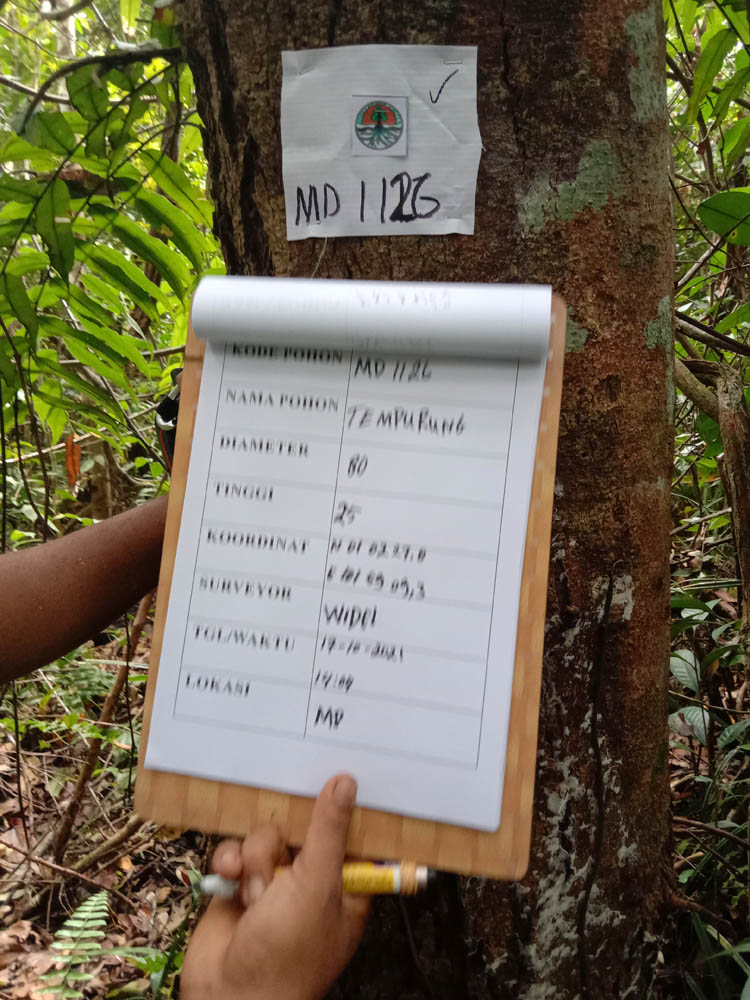 MD 1126
KODE POHON MD 1126
NAMA POHON TEMPURUNG
DIAMETER 80
TINGGI 25
KOORDINAT N 01 02 27,0
E 101 09 09,3
SURVEYOR WIDEI
TGL/WAKTU 17-10-2021
17:09
LOKASI MD